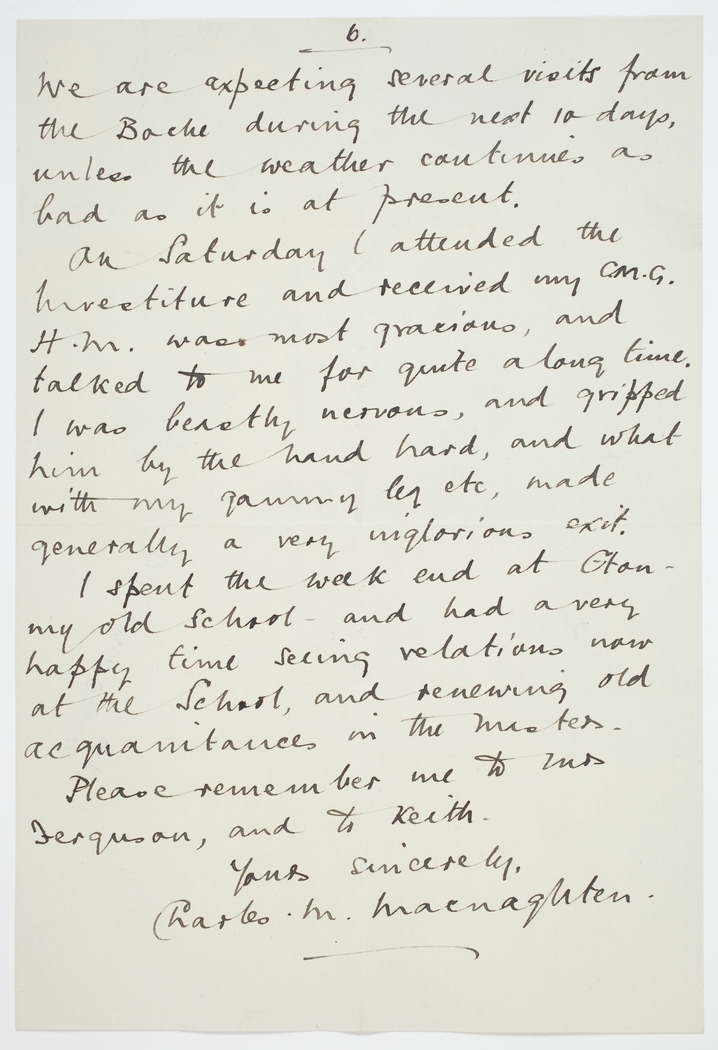 6.
We are expecting several visits from
the Boche during the next 10 days,
unless the weather continues as
bad as it is at present.
On Saturday I attended the
Investiture and received my C.M.G.
H.M. was most gracious, and
talked to me for quite a long time.
I was beastly nervous, and gripped
him by the hand hard, and what
with my gammy leg etc, made
generally a very inglorious exit.
I spent the week end at Eton -
my old school - and had a very
happy time seeing relations now
at the School, and renewing old
acquanitances in the Masters.
Please remember me to Mrs
Ferguson, and to Keith.
Yours sincerely,
Charles. M. Macnaghten.